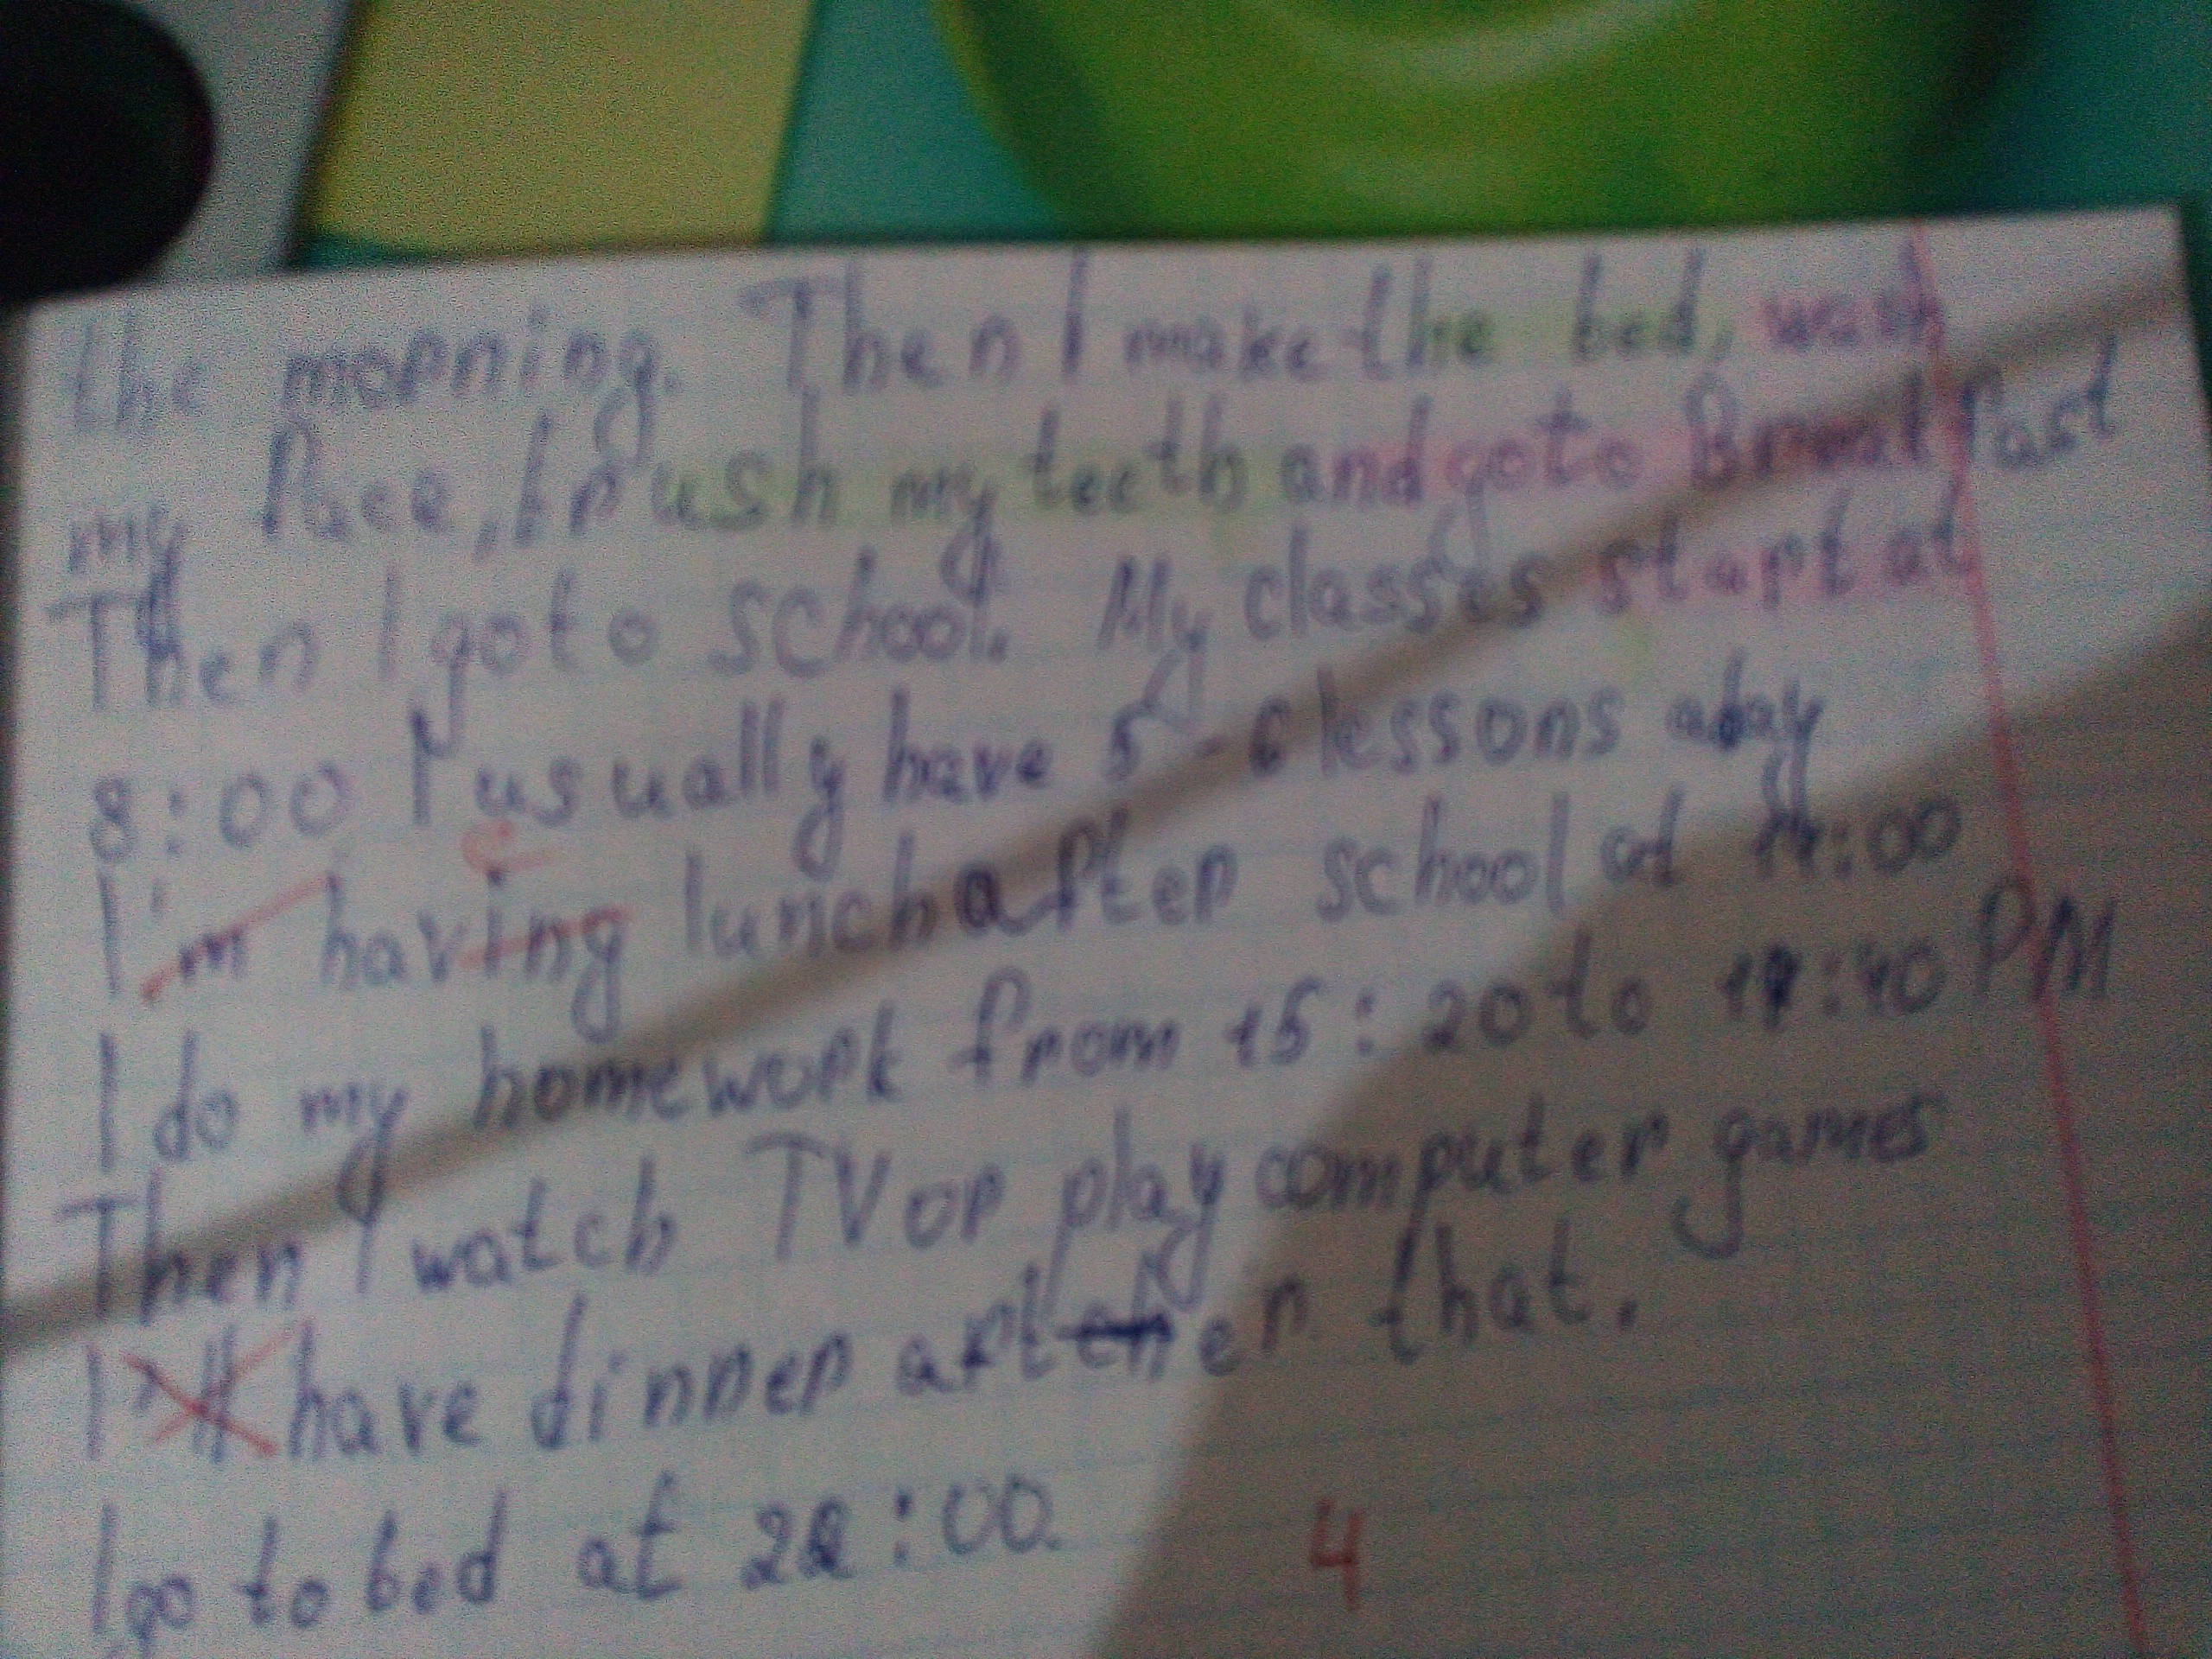 the morning. Then I make the bed, wash
my face, brush my teeth and go to Breakfast
Then I go to school. My classes start at
8:00 I usually have 5-6 lessons a day
I'm having lunch after school at :00
I do my homework from 15:20 to :40 PM
Then I watch TV or play computer games
I'll have dinner after that.
I go to bed at 22:00.
4